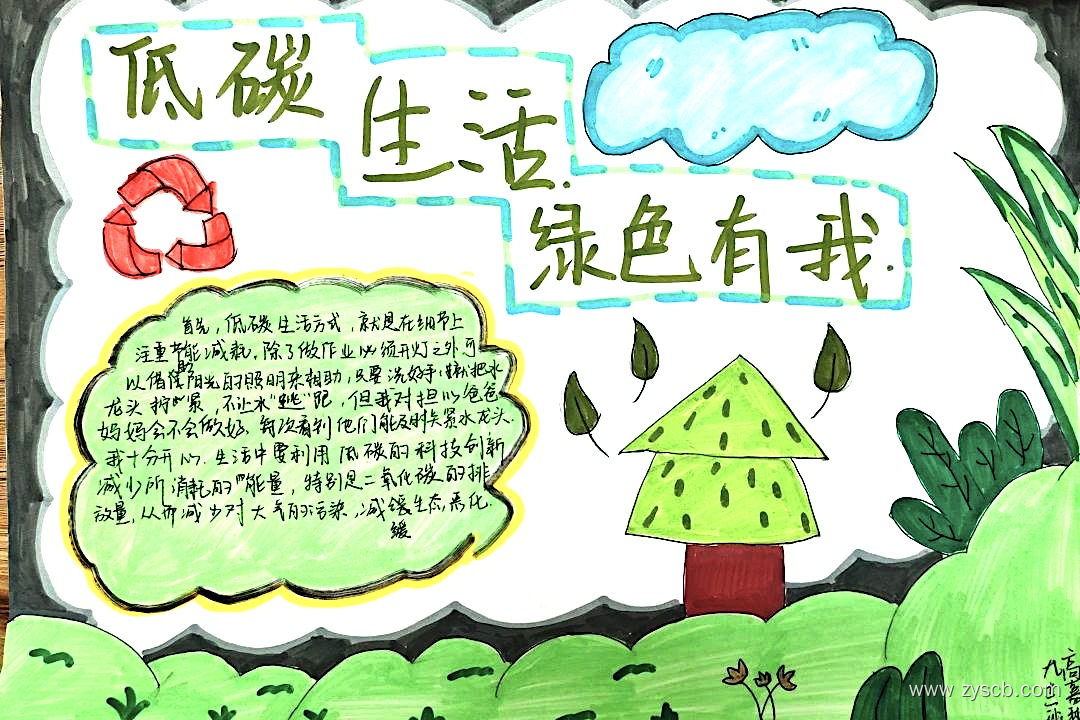 低碳
生活.
绿色有我.
首先，低碳生活方式，就是在细节上
注重节能减耗，除了做作业必须开灯之外可
以借阳光的照明来相助，只要洗好手，就把水
龙头拧紧，不让水"逃"跑，但我对担心爸爸
妈妈会不会做好、每次看到他们能及时关紧水龙头.
我十分开心.生活中要利用低碳的科技创新
减少所消耗的能量，特别是二氧化碳的排
放量，从而减少对大气的污染，减缓生态恶化.
缓
www.zyscb.com